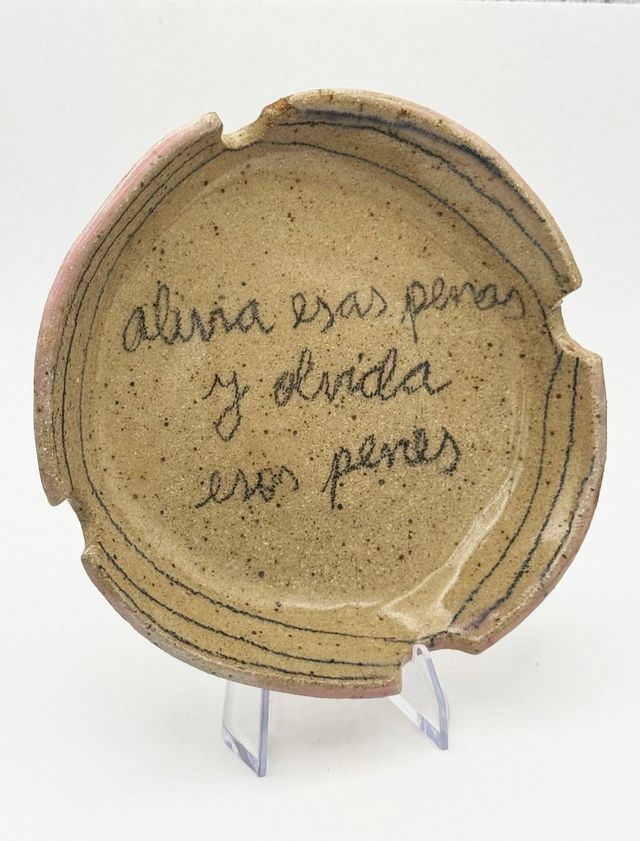 alivia esas penas
y olvida
esos penes